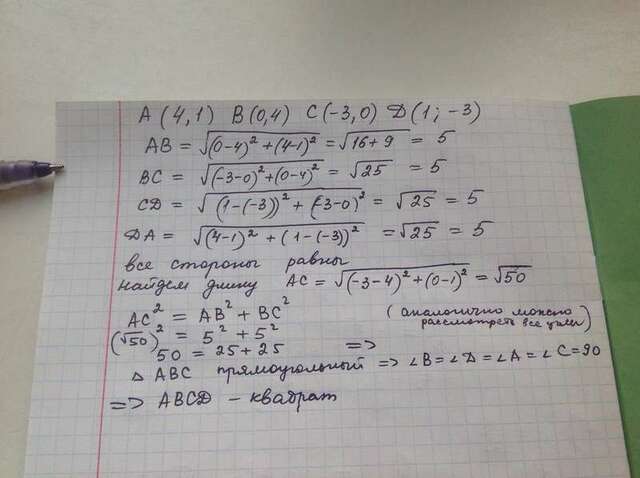 A (4,1) B(0,4) C(-3,0) D(1;-3)
AB = √((0-4)² + (4-1)²) = √(16+9) = 5
BC = √((-3-0)² + (0-4)²) = √25 = 5
CD = √((1-(-3))² + (-3-0)²) = √25 = 5
DA = √((4-1)² + (1-(-3))²) = √25 = 5
все стороны равны
найдем длину AC = √((-3-4)² + (0-1)²) = √50
AC² = AB² + BC²
(аналогично можно рассмотреть все углы)
(√50)² = 5² + 5²
50 = 25 + 25 =>
△ ABC прямоугольный => ∠B = ∠D = ∠A = ∠C = 90
=> ABCD - квадрат